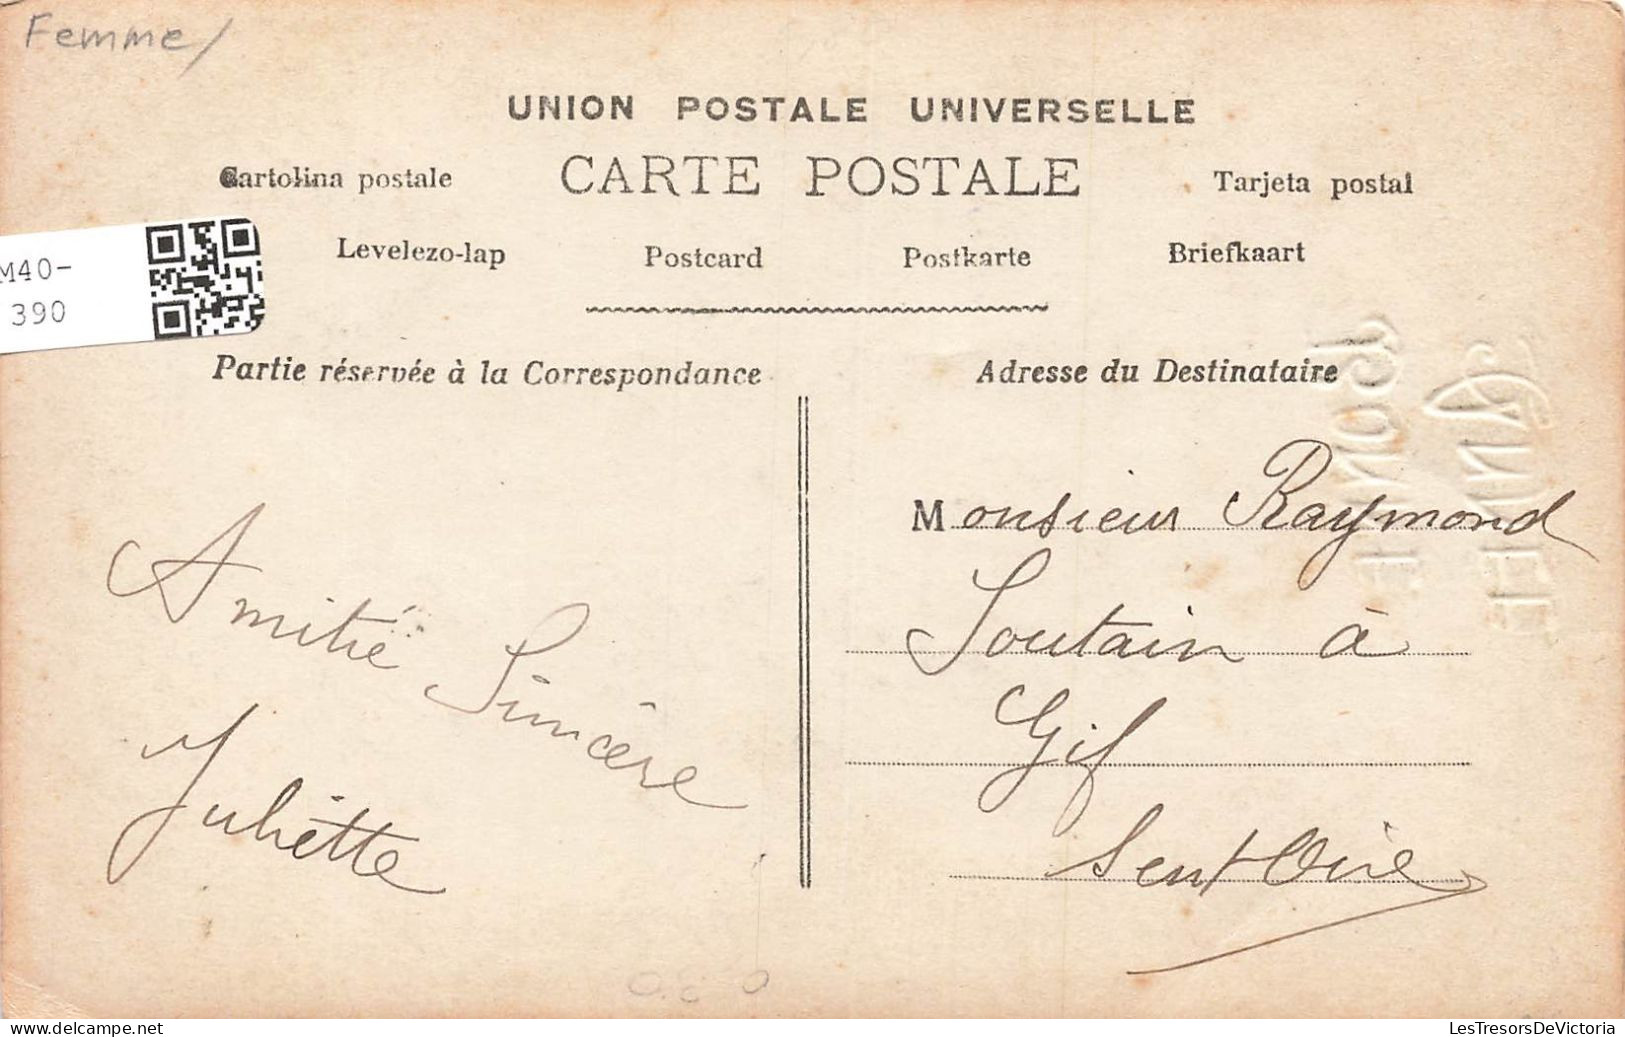 Femme/
UNION POSTALE UNIVERSELLE
Cartolina postale CARTE POSTALE Tarjeta postal
Levelezo-lap Postcard Postkarte Briefkaart
M40-
390
Partie réservée à la Correspondance
Adresse du Destinataire
Amitié Sincère
Juliette
Monsieur Raymond
Soutain à
Gif
Seint Oise
delcampe.net
LesTresorsDeVictoria